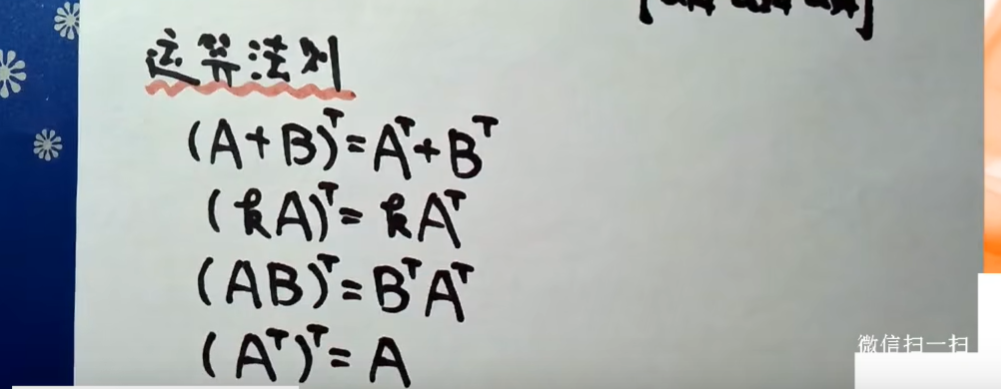 运算法则
(A+B)ᵀ=Aᵀ+Bᵀ
(kA)ᵀ=kAᵀ
(AB)ᵀ=BᵀAᵀ
(Aᵀ)ᵀ=A
微信扫一扫